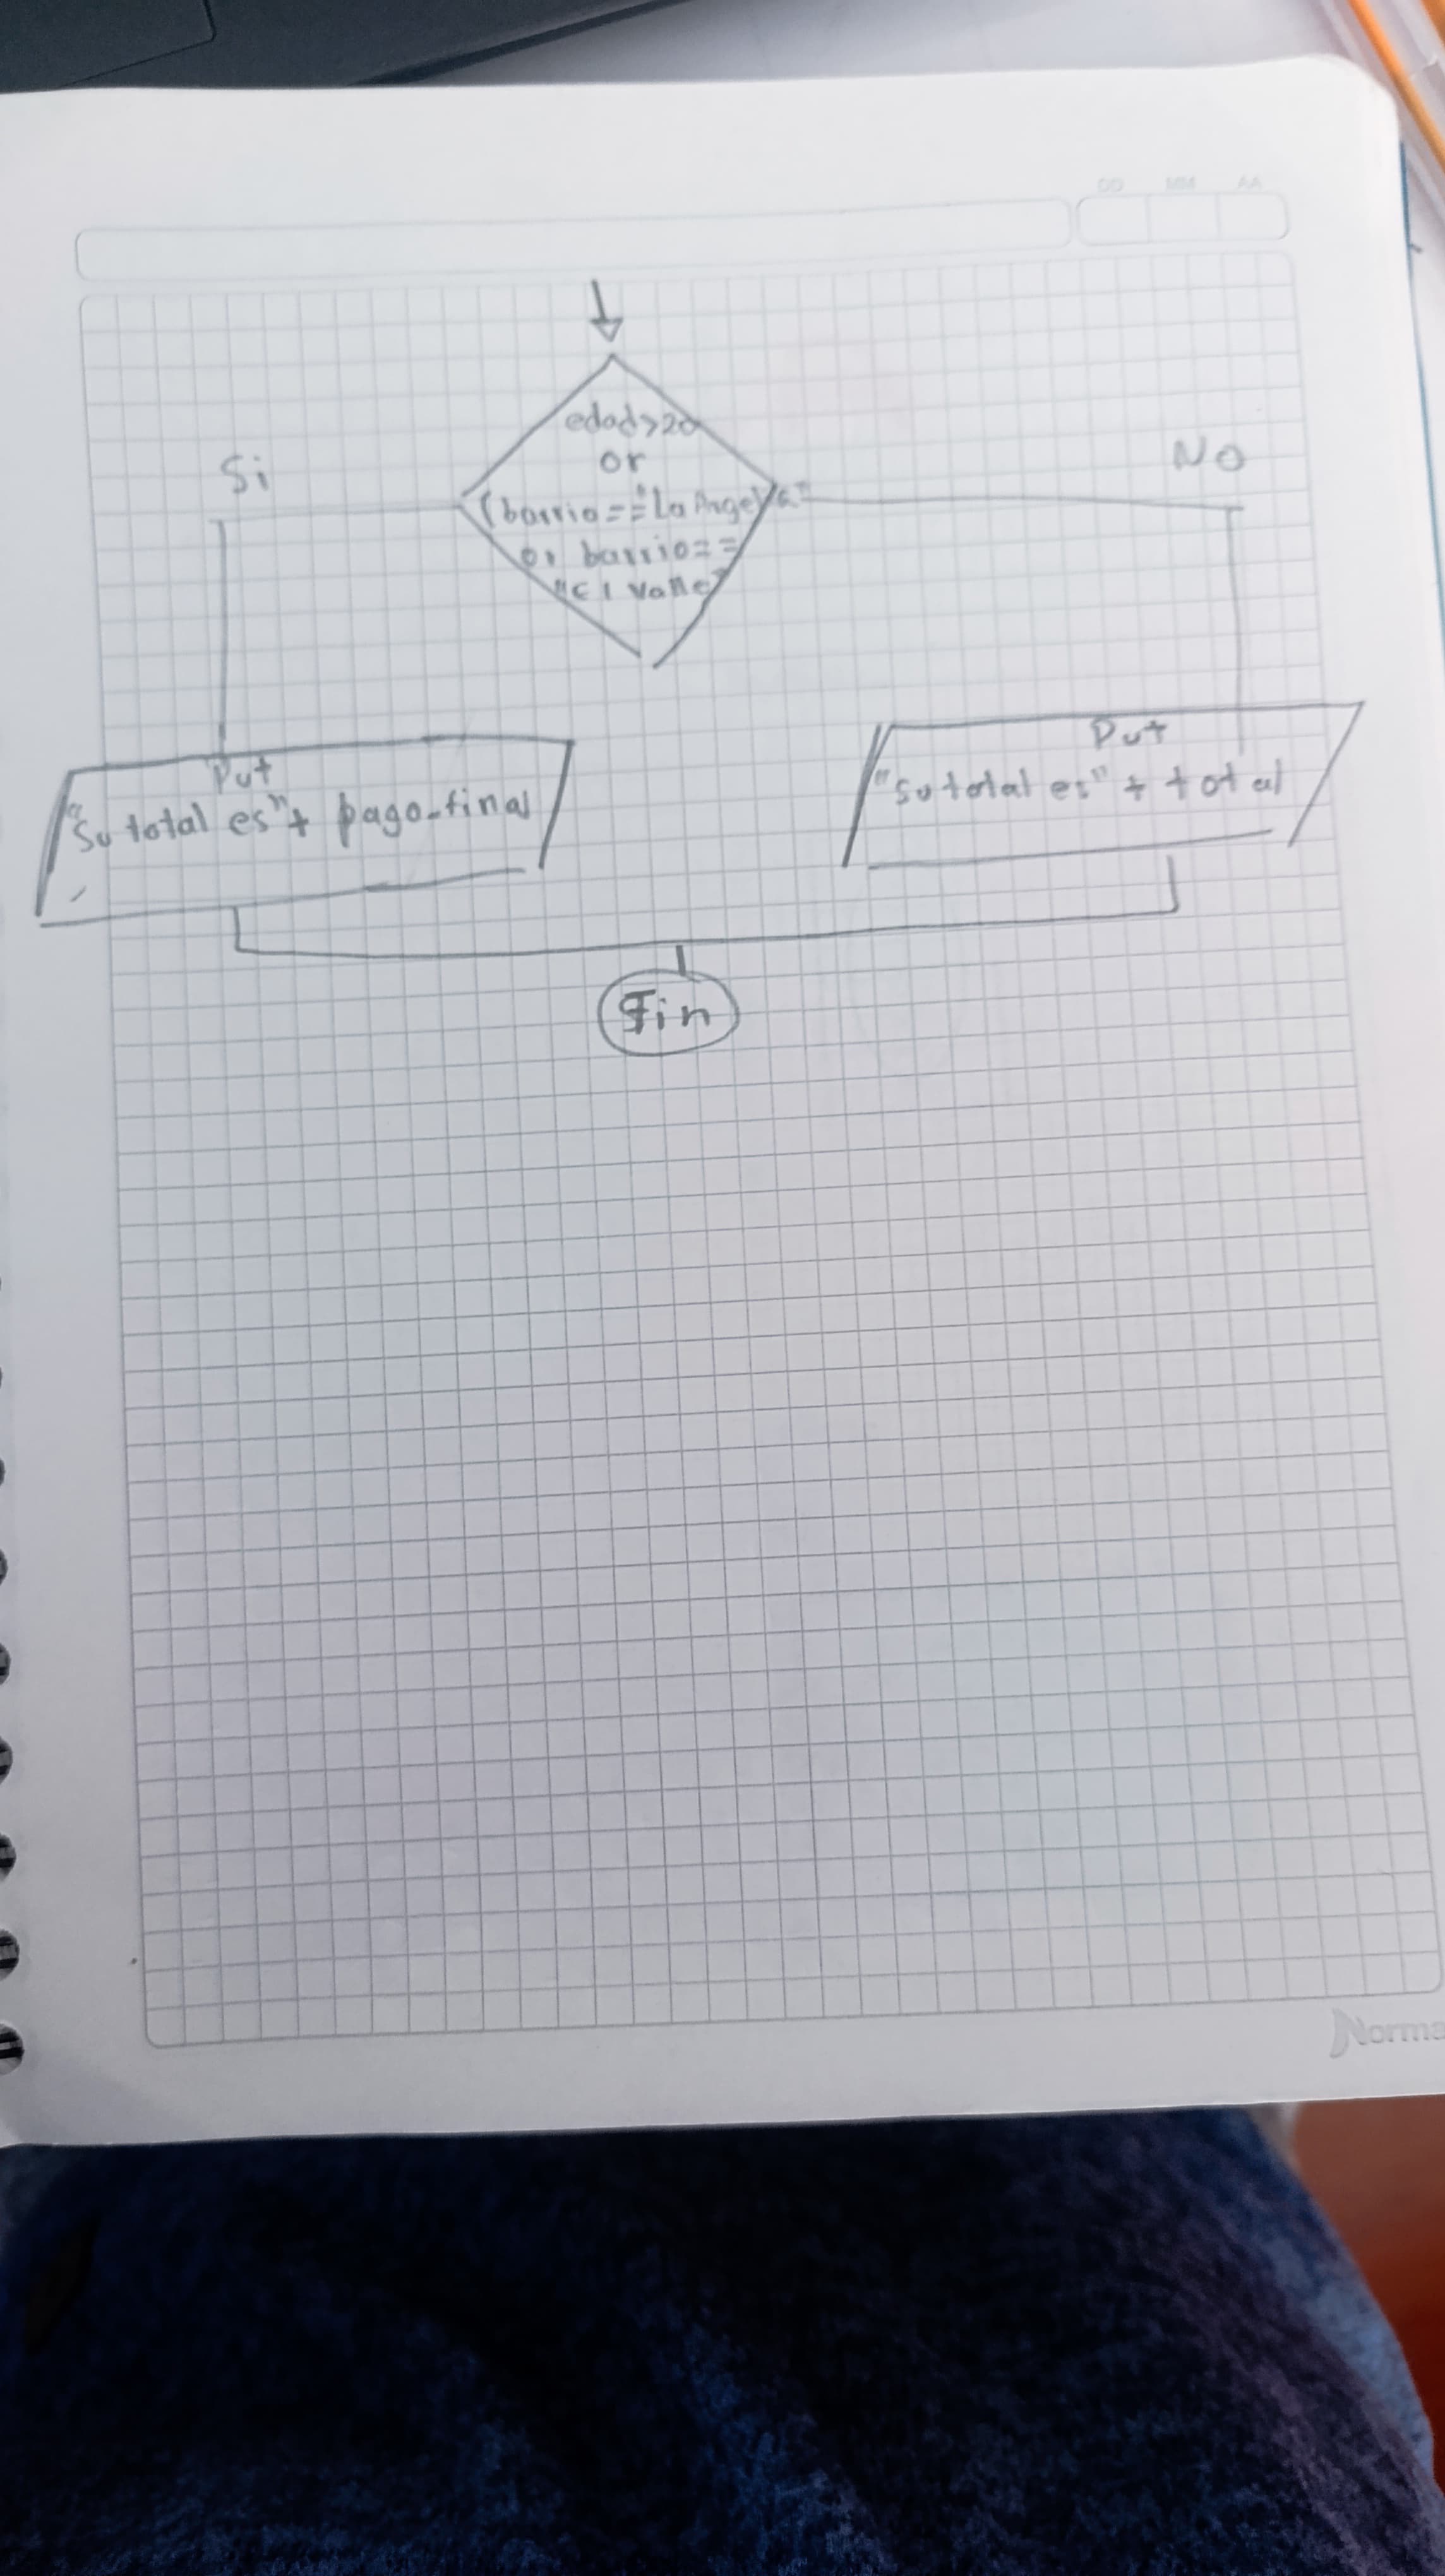 DD MM AA
edad>20
Si
or
No
(barrio=="La Angelya"
or barrio==
"El Valle"
Put
"Su total es"+ pago-final
Put
"su total es" + total
Fin
Norma